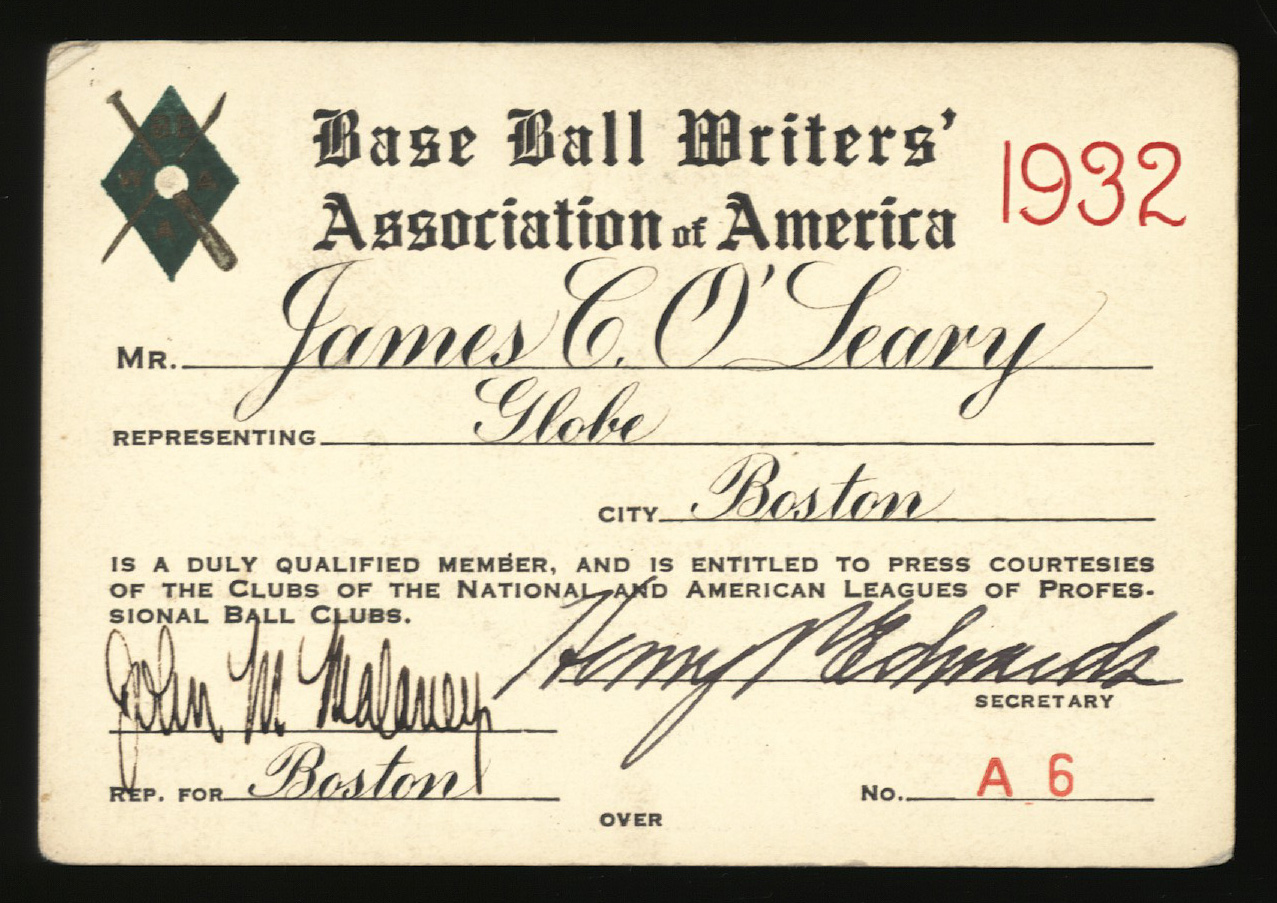 BB
W A
A
Base Ball Writers'
Association of America
1932
MR. James C. O'Leary
REPRESENTING Globe
CITY Boston
IS A DULY QUALIFIED MEMBER, AND IS ENTITLED TO PRESS COURTESIES
OF THE CLUBS OF THE NATIONAL AND AMERICAN LEAGUES OF PROFES-
SIONAL BALL CLUBS.
John M Malaney
Henry P Edwards
SECRETARY
REP. FOR Boston
No. A 6
OVER